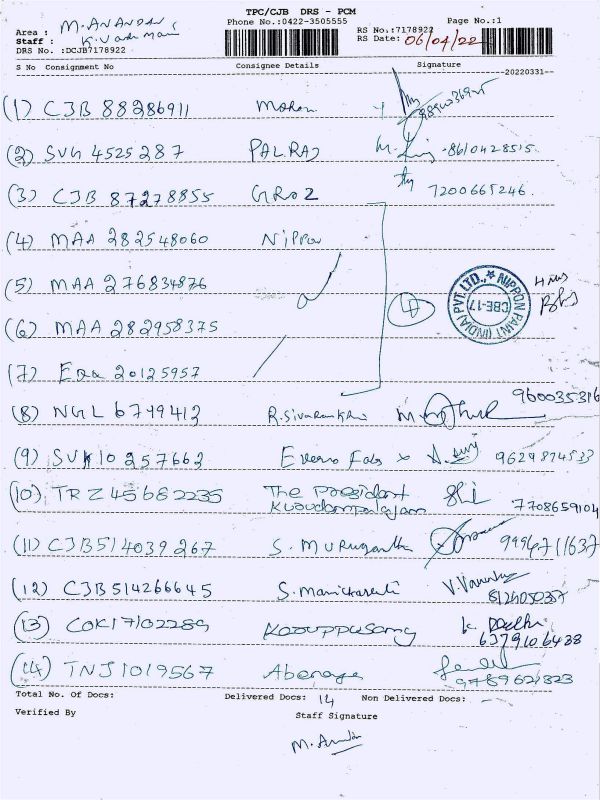 TPC/CJB DRS - PCM
Phone No.:0422-3505555 Page No.:1
Area : M. ANANDAN
Staff : K. Vadi mani
RS No.:7178922
RS Date: 06/04/22
DRS No. :DCJB7178922
S No Consignment No Consignee Details Signature
20220331
(1) CJB 88286911 Mohan
(2) SVG 4525287 PALRAJ 8610428515
(3) CJB 87278855 GROZ 7200665246
(4) MAA 282548060 Nippon
(5) MAA 276834876
(6) MAA 282958375
NIPPON PAINT (INDIA) PVT. LTD., CBE-17
(7) 20125957
(8) NGL 6749412 960035316
(9) 257662 9629874533
(10) TRZ 45682235 The President
7708659104
(11) CJB514039267 S. Muruganth 9994711637
(12) CJB514266645
(13) COK17102289 Karuppusamy 6379106438
(14) TNJ1019567 Abenaya 9789621323
Total No. Of Docs: Delivered Docs: 14 Non Delivered Docs:
Verified By Staff Signature